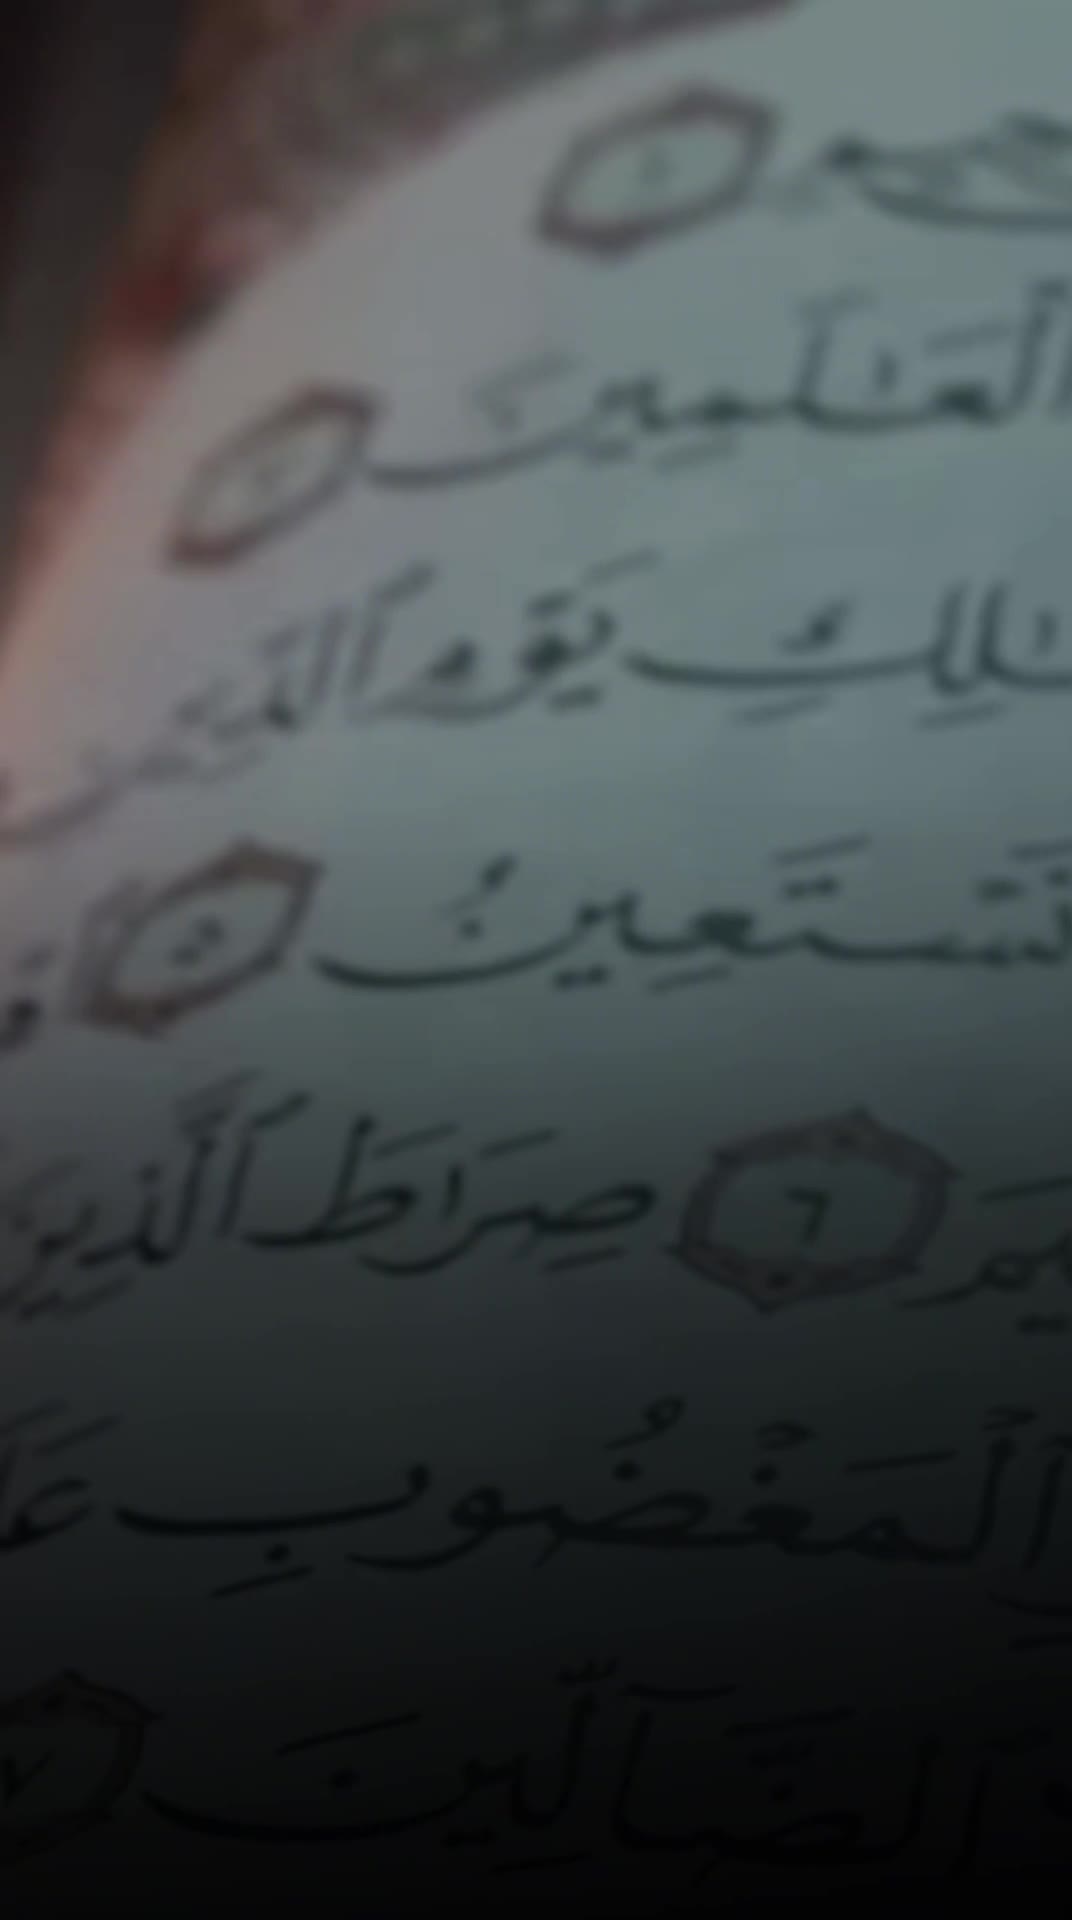 ١
ٱلْعَـٰلَمِينَ
ـٰلِكِ يَوْمِ ٱلدِّينِ
نَسْتَعِينُ ٥
ـيمَ ٦ صِرَٰطَ ٱلَّذِينَ
ٱلْمَغْضُوبِ عَلَـ
ٱلضَّآلِّينَ ٧